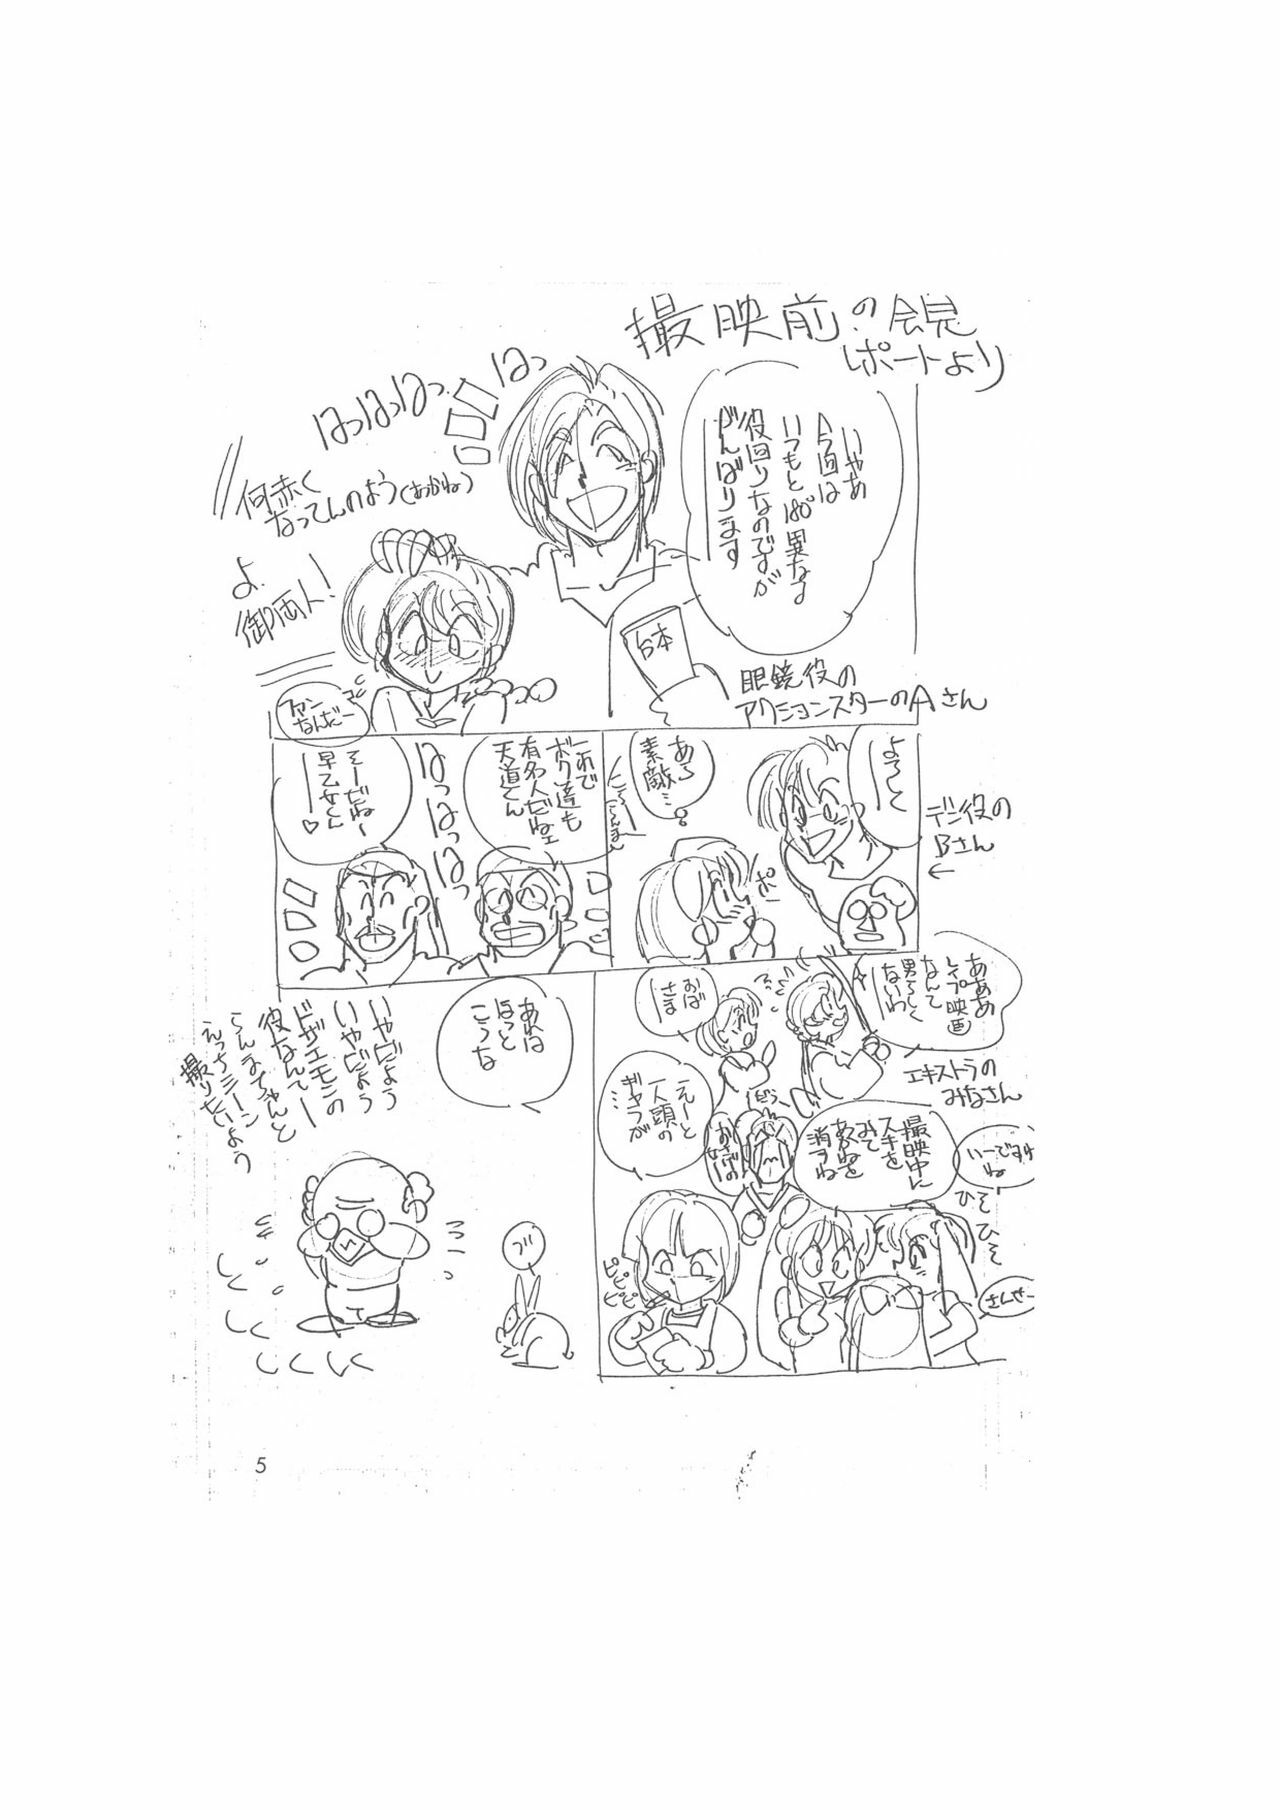 撮映前の会見
レポートより
いやあ
今回は
いつもと180°異なる
役回りなのですが
がんばります
はっはっはっはっ
台本
眼鏡役の
アクションスターのAさん
何赤く
なってんのよう(あかね)
よ
御両人!
ファン
なんだー
よろしく
デブ役の
Bさん
あら
素敵…
ポー
これで
ボク達も
有名人だねェ
天道くん
はっはっはっ
そーだねー
早乙女くん
ああああ
レイプ映画
なんて
男らしく
ないわ
おば
さま
エキストラの
みなさん
えーと
一人頭の
ギャラが
…
撮映中に
スキを
みて
あかねを
消すね
いーですわ
ね
ひそ
ひそ
さんせー
ピピピ
ピピピ
あれは
ほっと
こうな
ブ
いやじゃよう
いやじゃよう
ドザエモンの
役なんてー
らんまちゃんと
えっちシーン
撮りたいよう
しくしくしくしく
5